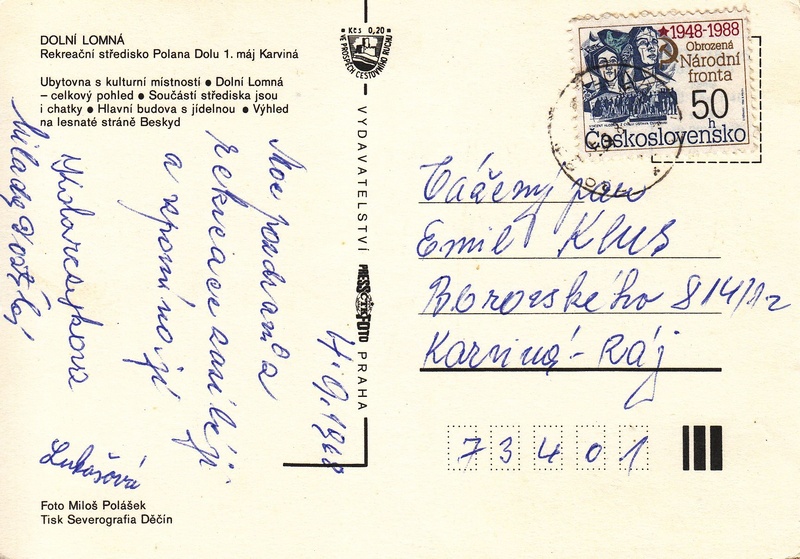 DOLNÍ LOMNÁ
Rekreační středisko Polana Dolu 1. máj Karviná
Ubytovna s kulturní místností ● Dolní Lomná
– celkový pohled ● Součástí střediska jsou
i chatky ● Hlavní budova s jídelnou ● Výhled
na lesnaté stráně Beskyd
Kčs 0,20
VE PROSPĚCH CESTOVNÍHO RUCHU
VYDAVATELSTVÍ PRESSFOTO PRAHA
★1948-1988
Obrozená
Národní
fronta
50
h
Československo
4.9.1988
Moc pozdravů z
rekreace zasílají
a vzpomínají
Lukášová
Vážený pan
Emil Klus
Borovského 814/12
Karviná-Ráj
73401
Foto Miloš Polášek
Tisk Severografia Děčín